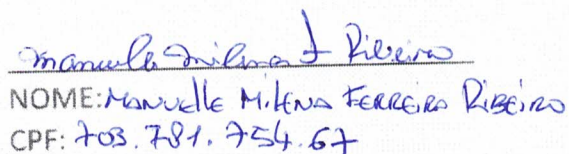 Manuelle Milena F Ribeiro
NOME: MANUELLE MILENA FERREIRA RIBEIRO
CPF: 703.781.754.67